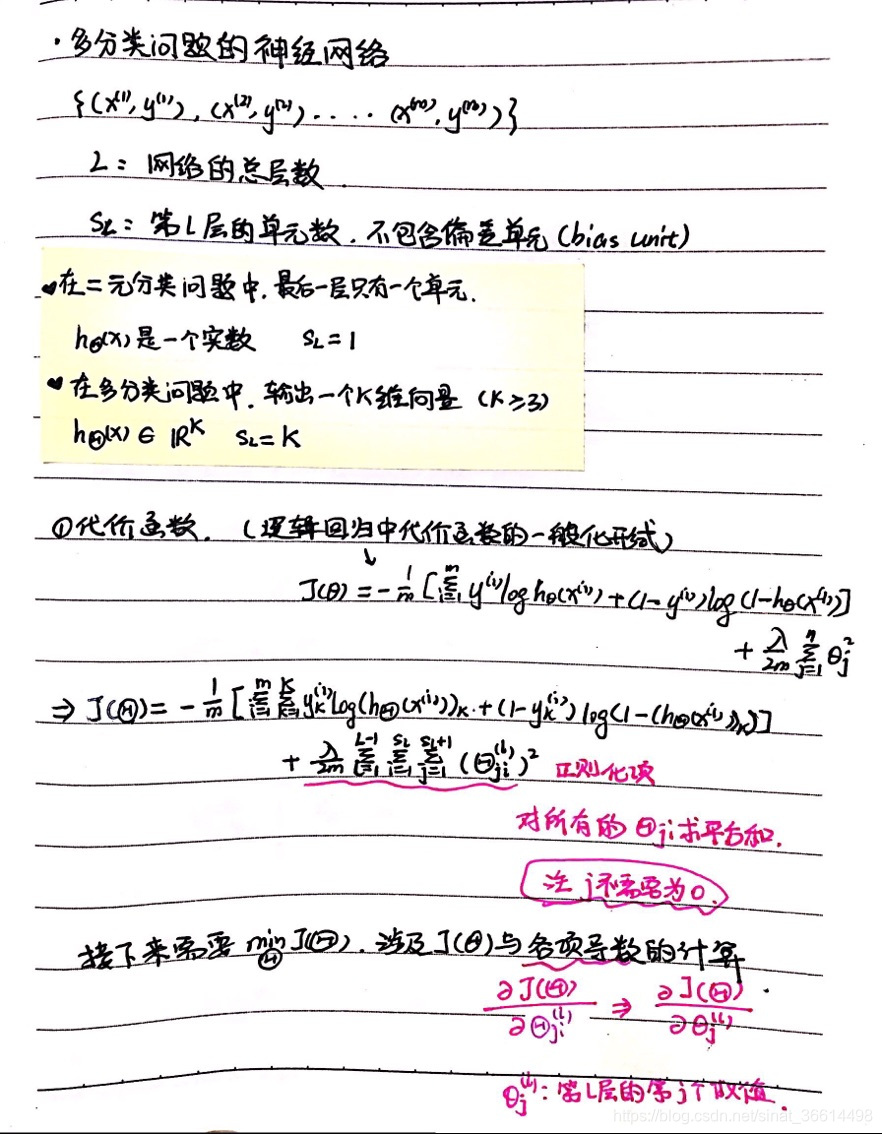 · 多分类问题的神经网络
{(x⁽¹⁾, y⁽¹⁾), (x⁽²⁾, y⁽²⁾) ..... (x⁽ᵐ⁾, y⁽ᵐ⁾)}
L: 网络的总层数.
S_L: 第L层的单元数. 不包含偏差单元 (bias unit)
在二元分类问题中. 最后一层只有一个单元.
h_Θ(x) 是一个实数 S_L = 1
在多分类问题中. 输出一个K维向量 (K ≥ 3)
h_Θ(x) ∈ ℝ^K S_L = K
①代价函数. (逻辑回归中代价函数的一般化形式)
↓
J(θ) = -1/m [∑_{i=1}^{m} y^(i) log h_θ(x^(i)) + (1-y^(i)) log(1-h_θ(x^(i)))]
+ λ/2m ∑_{j=1}^{n} θ_j²
⇒ J(Θ) = -1/m [∑_{i=1}^{m} ∑_{k=1}^{K} y_k^(i) log(h_Θ(x^(i)))_k + (1-y_k^(i)) log(1-(h_Θ(x^(i)))_k)]
+ λ/2m ∑_{l=1}^{L-1} ∑_{i=1}^{S_L} ∑_{j=1}^{S_L+1} (Θ_{ji}^{(l)})² 正则化项
对所有的 Θ_ji 求平方和.
注 j不需要为0.
接下来需要 min_Θ J(Θ). 涉及J(θ)与各项导数的计算.
∂J(Θ)/∂Θ_{ji}^{(l)} ⇒ ∂J(Θ)/∂θ_j^{(l)}
θ_j^{(l)}: 第L层的第j个取值.
https://blog.csdn.net/sinat_36614498